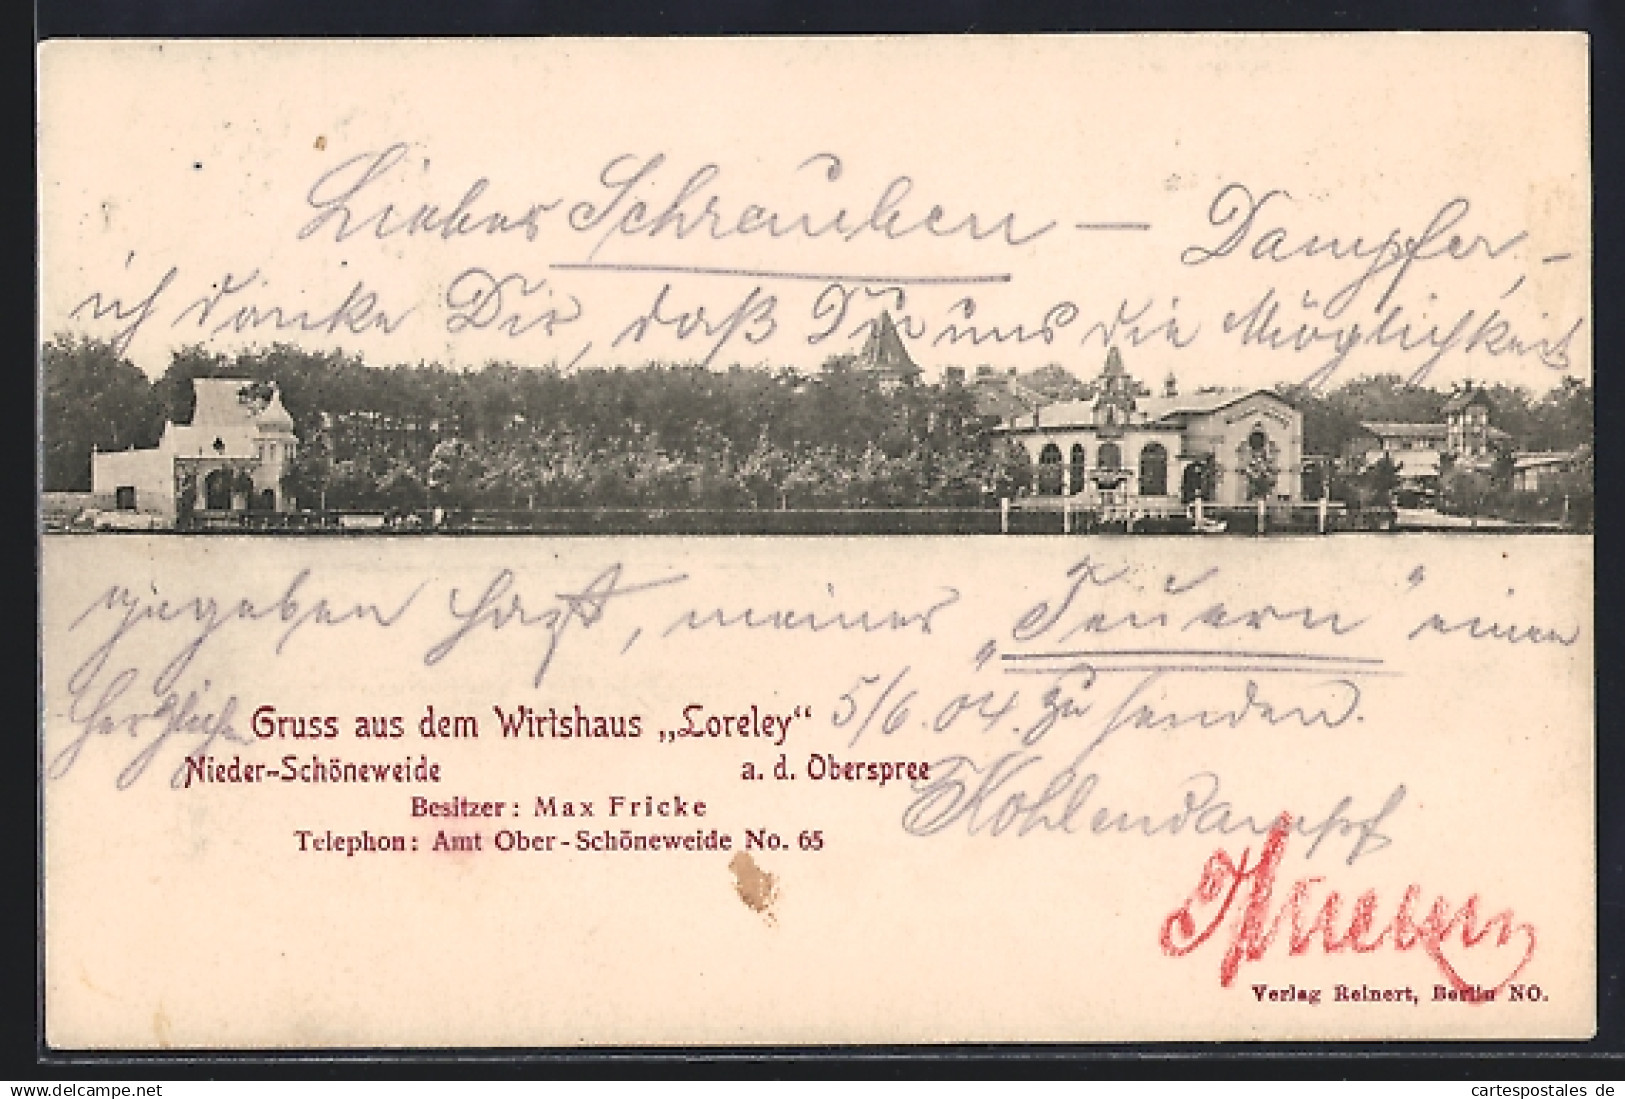 Liebes Schrauben — Dampfer, –
ich danke Dir, daß Du uns die Möglichkeit
gegeben hast, meiner „Teuern“ einen
herzlichen
5/6. 04. zu senden.
Gruss aus dem Wirtshaus „Loreley“
Nieder-Schöneweide a. d. Oberspree
Kohlendampf
Besitzer: Max Fricke
Telephon: Amt Ober-Schöneweide No. 65
Verlag Reinert, Berlin NO.
WWW.DELCAMPE.NET
cartespostales de